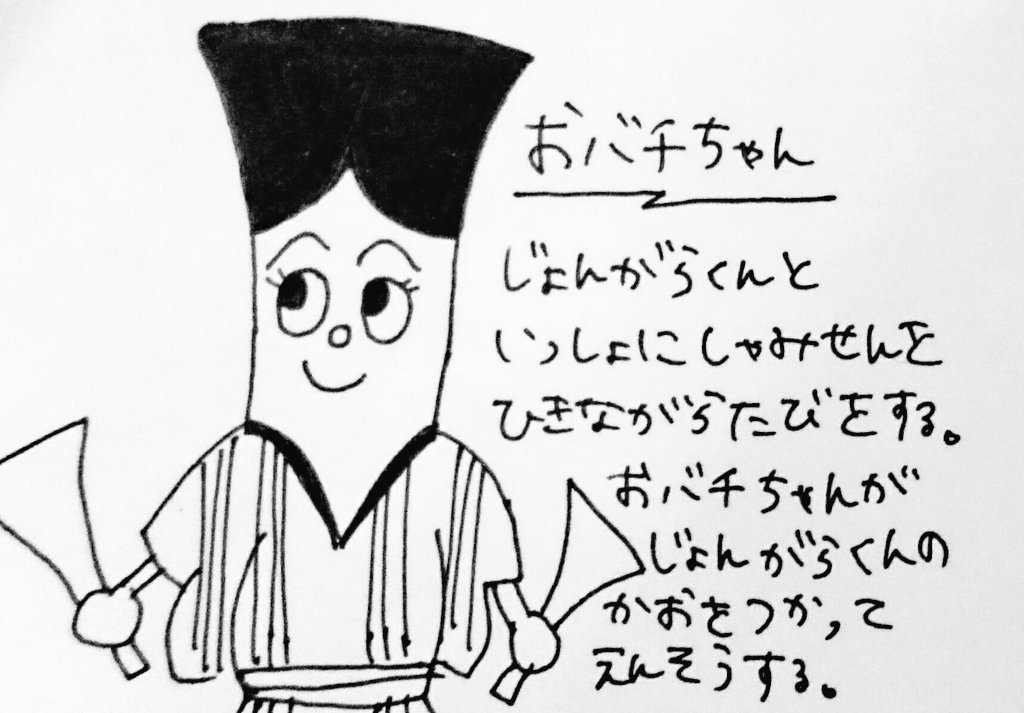 おバチちゃん
じょんがらくんと
いっしょにしゃみせんを
ひきながらたびをする。
おバチちゃんが
じょんがらくんの
かおをつかって
えんそうする。